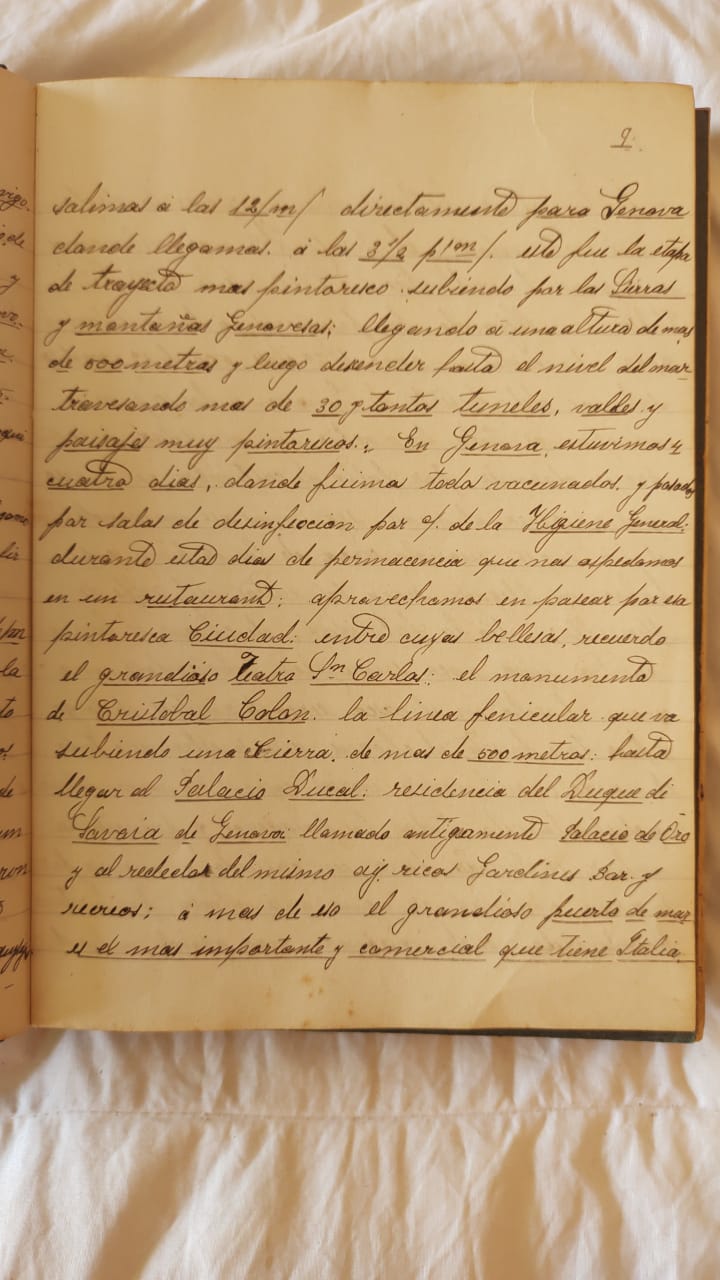 9.
salimos á las 12/m/ directamente para Genova
donde llegamos. á las 3½ p/m/. este fue la etapa
de trayecto mas pintoresco subiendo por las Sierras
y montañas Genovesas; llegando á una altura de mas
de 500 metros y luego desender hasta el nivel del mar
travesando mas de 30 y tantos tuneles, valdes y
paisajes muy pintorescos., En Genova, estuvimos 4
cuatro dias, donde fuimo todo vacunados, y pasados
por salas de desinfeccion por c/. de la Higiene General:
durante estad dias de permacencia que nos aspedamos
en un restaurant; aprovechamos en pasear por esa
pintoresca Ciudad: entre cuyas bellesas, recuerdo
el grandioso Teatro Sn Carlos: el monumento
de Cristobal Colon. la linea fenicular que va
subiendo una Cierra, de mas de 500 metros: hasta
llegar al Palacio Ducal: residencia del Duque di
Savoia de Genova: llamado antigamente Palacio de Oro
y al rededor del mismo ay. ricos Jardines Bar. y
recreos; á mas de eso el grandioso puerto de mar
es el mas importante y comercial que tiene Italia.